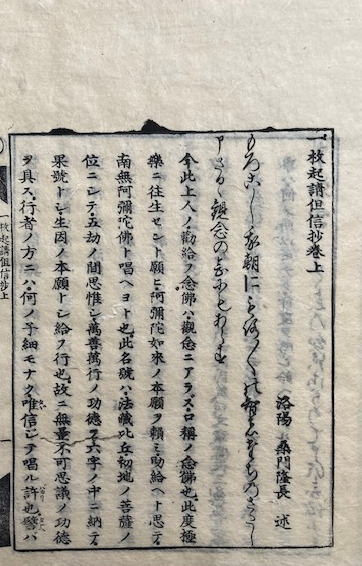 一枚起請但信抄卷上
洛陽 桑門隆長 述
もろこし我朝にもろ〱の智者たちのさたし
申さるゝ觀念の念にもあらす
今此上人ノ勸給フ念佛ハ觀念ニアラズ口稱ノ念佛也此度極
樂ニ往生セント願ヒ阿彌陀如來ノ本願ヲ賴ミ助給ヘト思テ
南無阿彌陀佛ト唱ヘヨト也此名號ハ法藏比丘初地ノ菩薩ノ
位ニシテ五劫ノ間思惟シ萬善萬行ノ功德ヲ六字ノ中ニ納テ
果號トシ生因ノ本願トシ給フ行也故ニ無量不可思議ノ功德
ヲ具ス行者ノ方ニハ何ノ子細モナク唯信シテ唱ル許也譬ハ
一枚起請但信抄上